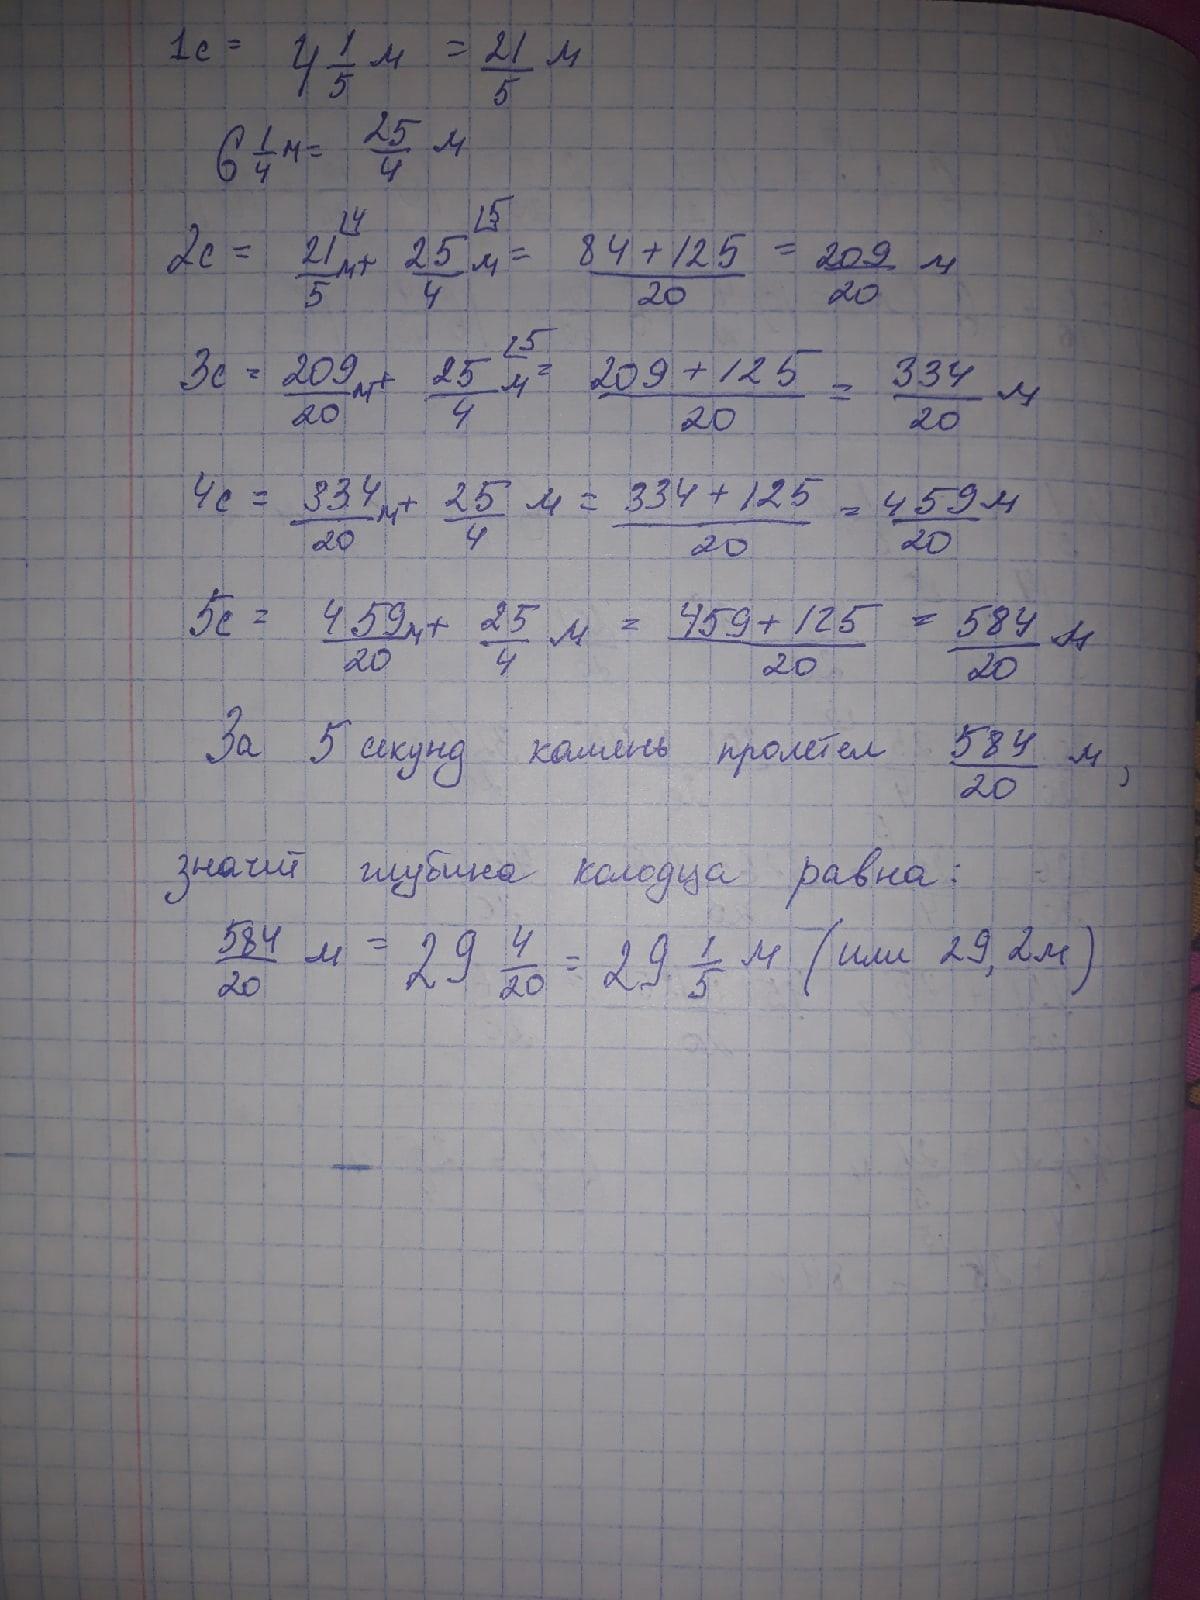 1с = 4 1/5 м = 21/5 м
6 1/4 м = 25/4 м
2с = 21/5 м + 25/4 м = (84+125)/20 = 209/20 м
3с = 209/20 м + 25/4 м = (209+125)/20 = 334/20 м
4с = 334/20 м + 25/4 м = (334+125)/20 = 459/20 м
5с = 459/20 м + 25/4 м = (459+125)/20 = 584/20 м
За 5 секунд камень пролетел 584/20 м,
значит глубина колодца равна:
584/20 м = 29 4/20 = 29 1/5 м (или 29,2м)